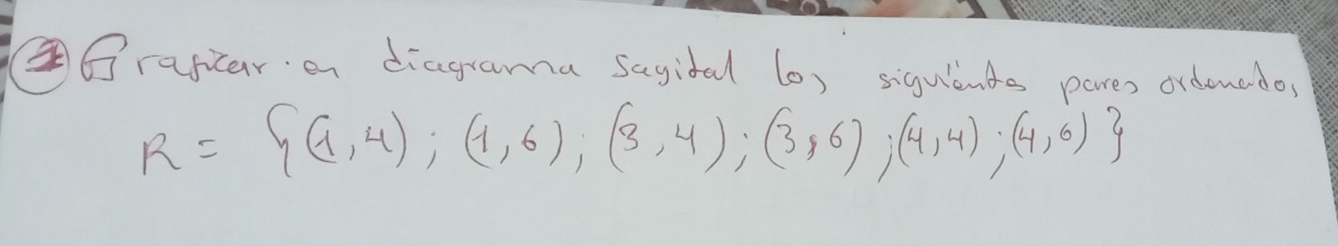 1 Graficar en diagrama sagital los siguientes pares ordenados
R = {(1,4); (1,6); (3,4); (3,6); (4,4); (4,6)}